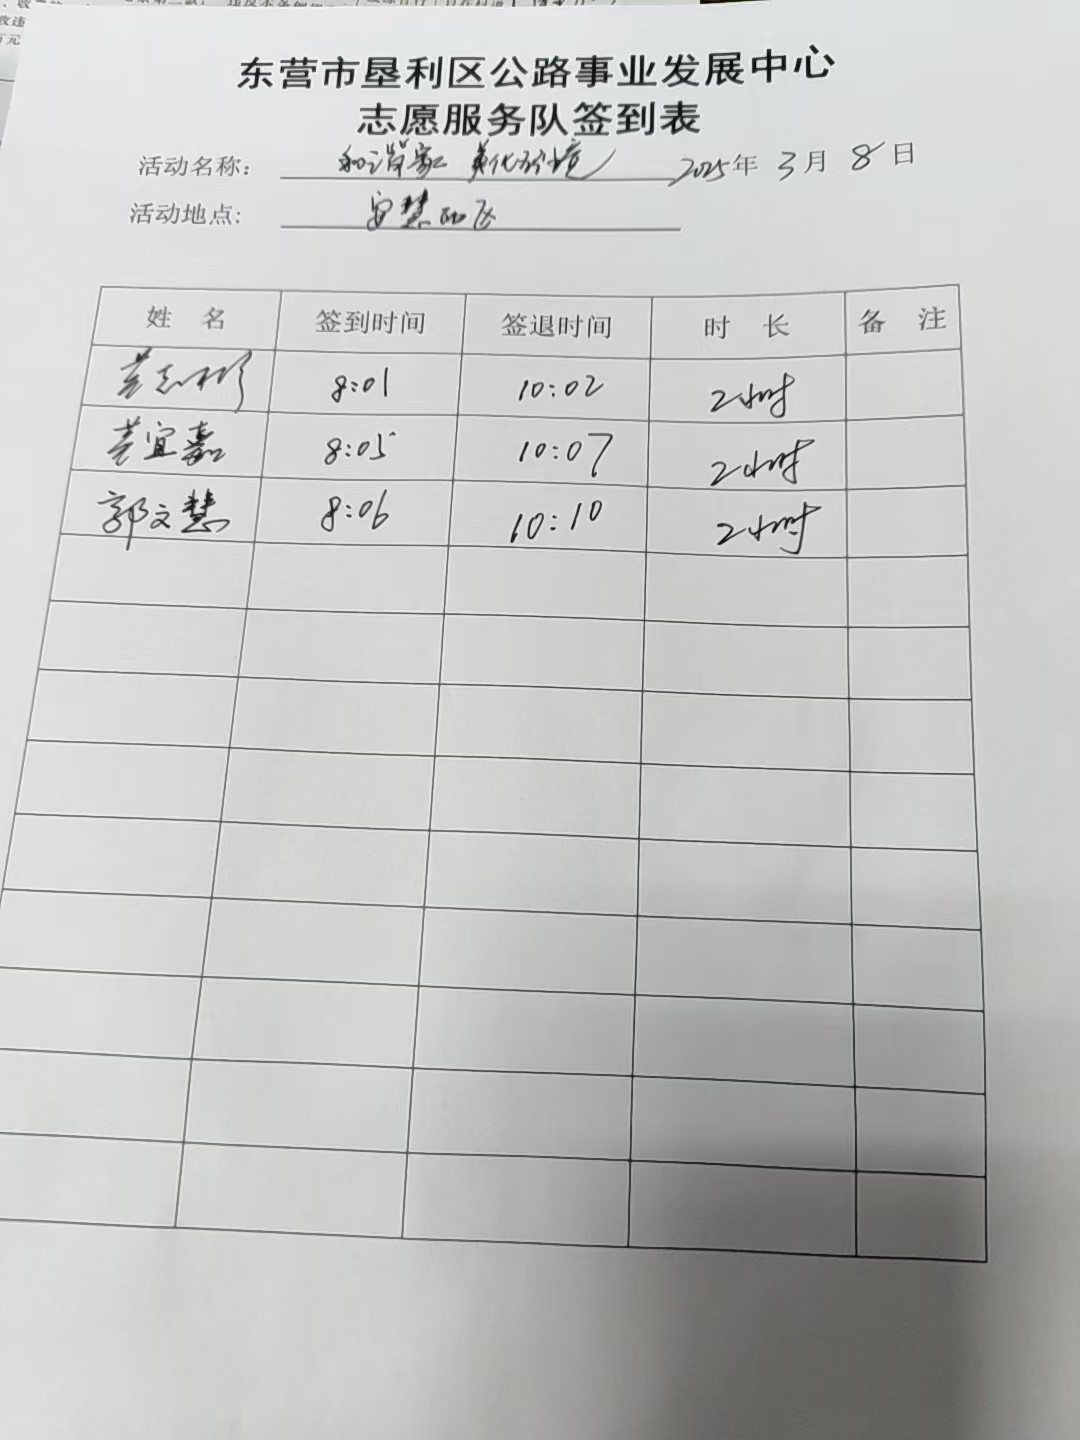 东营市垦利区公路事业发展中心
志愿服务队签到表
活动名称： 和谐家 美化环境 2025年 3月 8日
活动地点： 安慧
姓 名 签到时间 签退时间 时 长 备 注
8:01 10:02 2小时
宜嘉 8:05 10:07 2小时
郭文慧 8:06 10:10 2小时